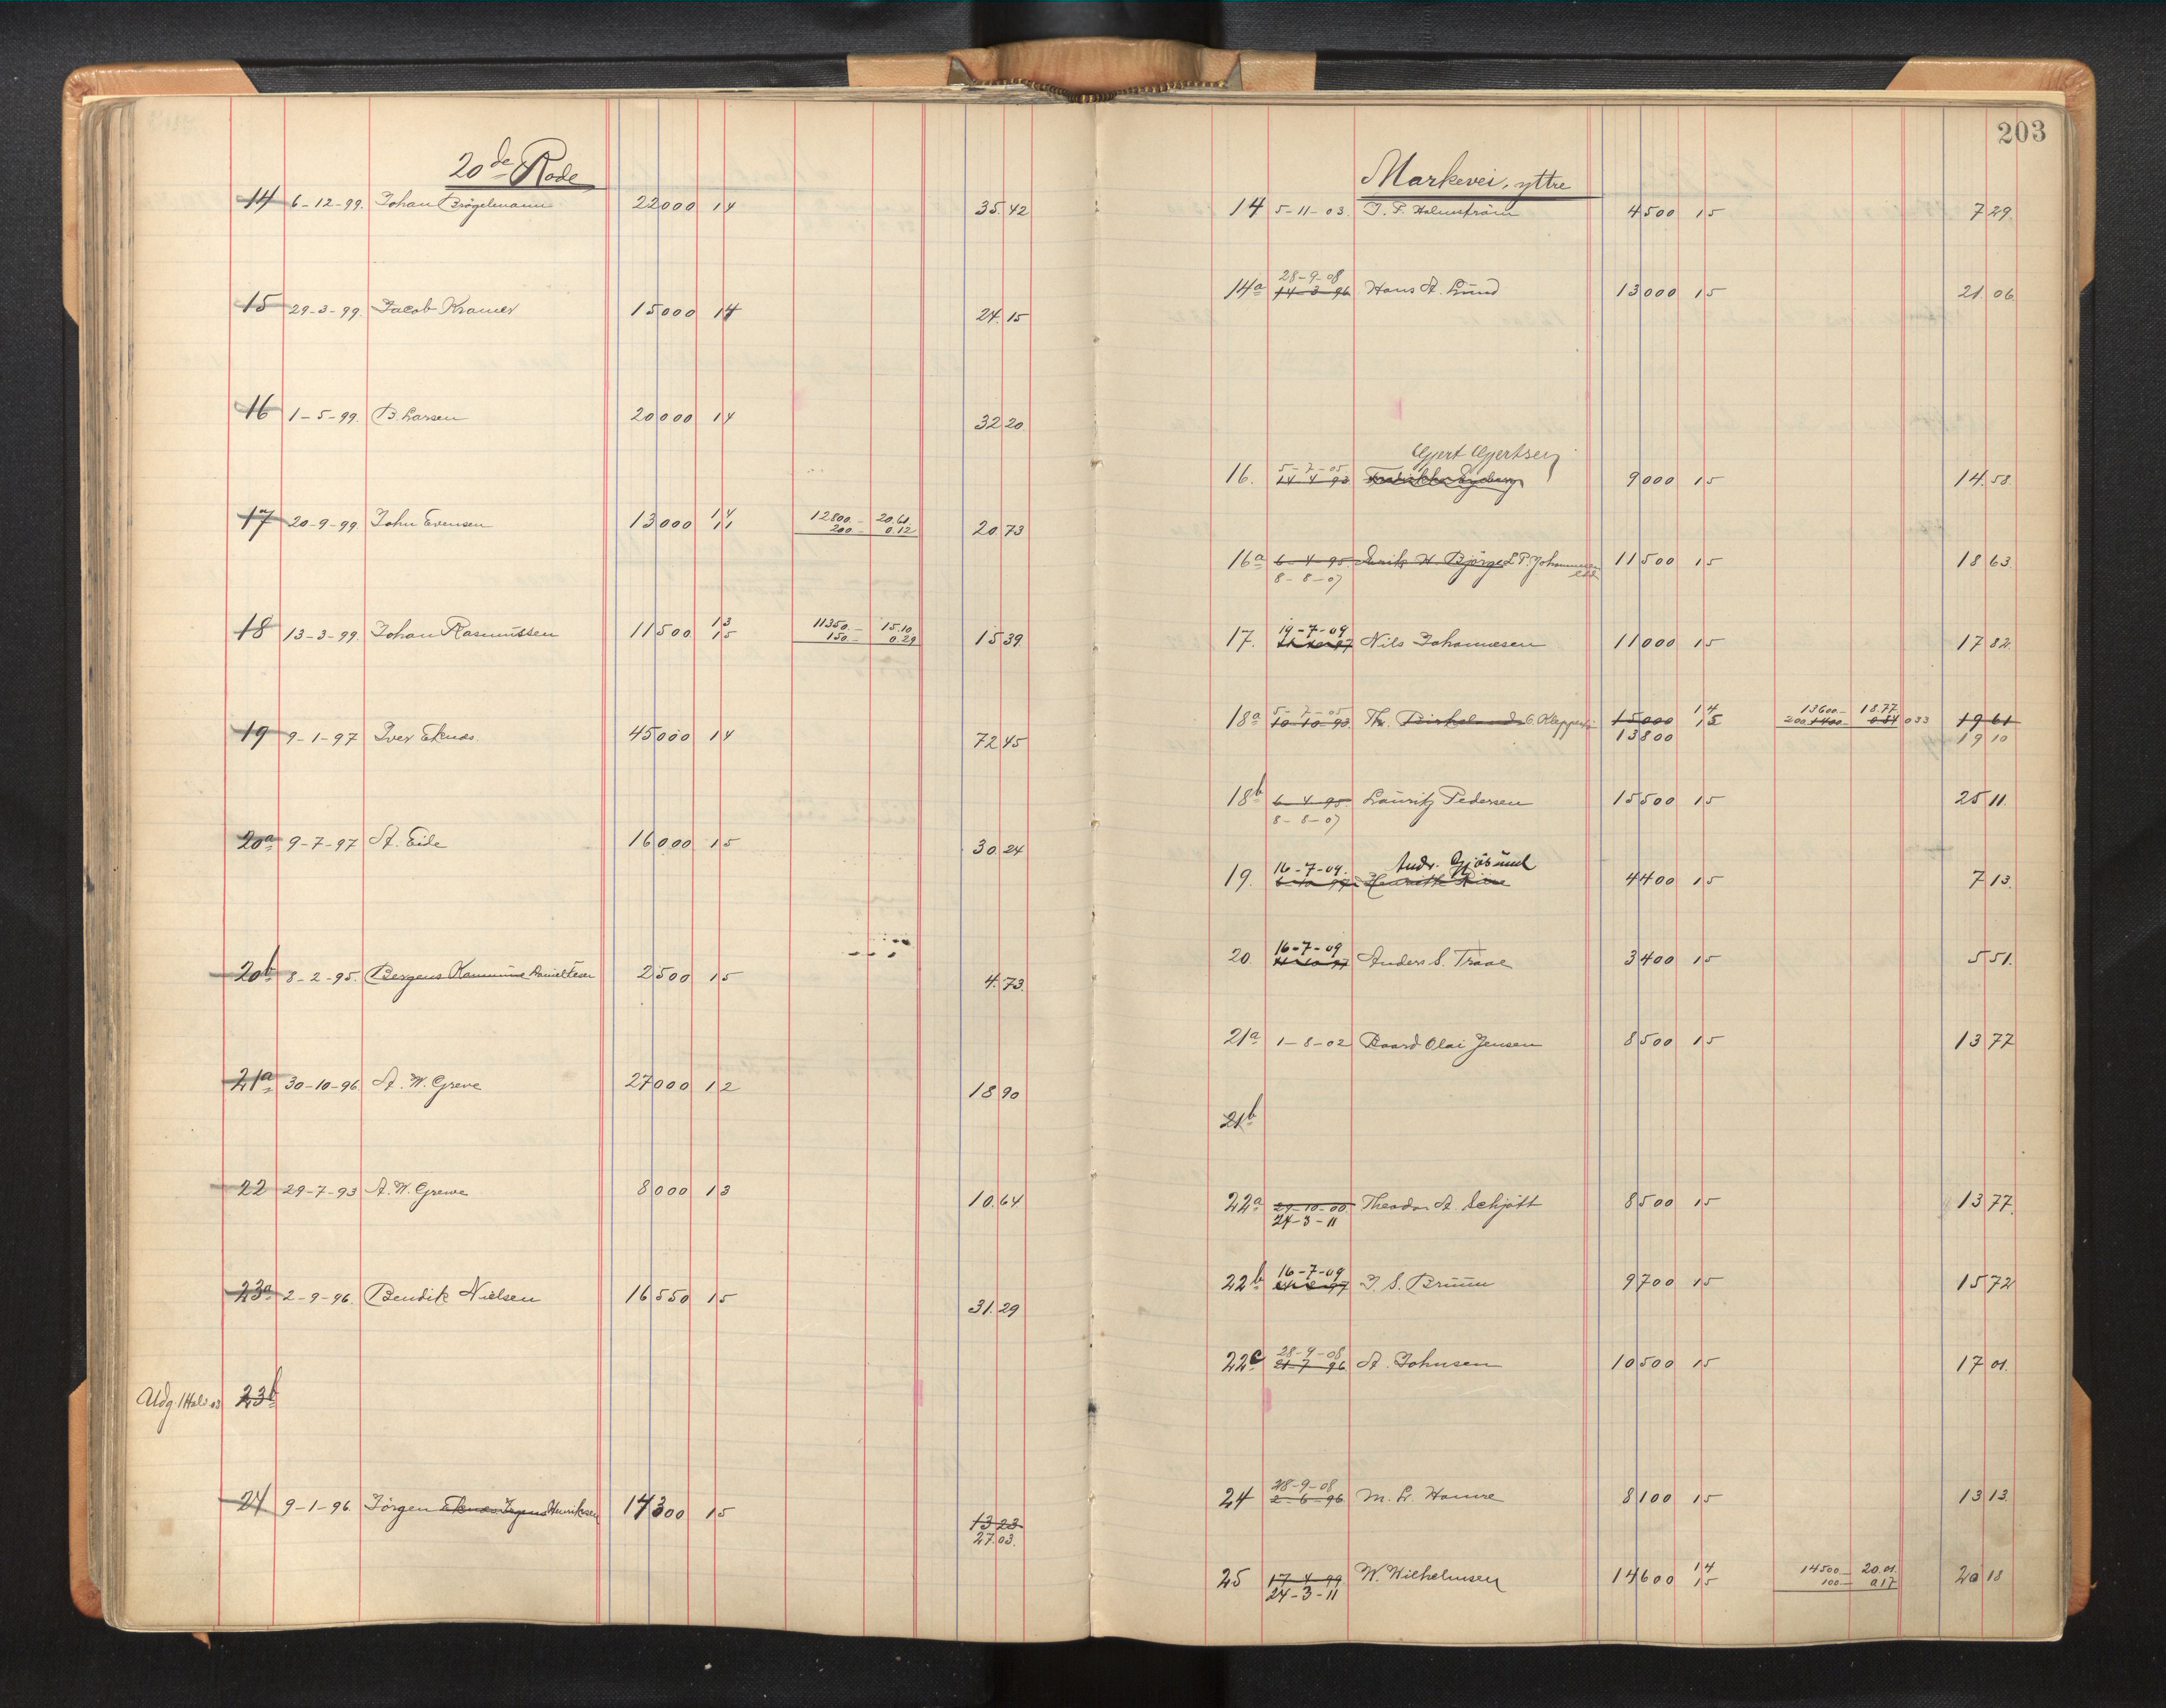 20de Rode
14 6-12-99. Johan Brögelmann 22000 14 35.42
15 29-3-99. Jacob Kramer 15000 14 24.15
16 1-5-99. B. Larsen 20000 14 32 20
17 20-9-99. John Evensen 13000 14 11 12800.- 20.61 200.- 0.12 20.73
18 13-3-99. Johan Rasmussen 11500 13 15 11350.- 15.10 150.- 0.29 15 39
19 9-1-97 Iver Eknes. 45000 14 72 45
20a 9-7-97 A. Eide 16000 15 30.24
20b 8-2-95. Bergens Kommune 2500 15 4.73.
21a 30-10-96 A. W. Greve 27000 12 18 90
22 29-7-93 A. W. Greve 8000 13 10.64
23a 2-9-96. Bendik Nielsen 16550 15 31.29
Udg. 23b
24 9-1-96. Jörgen Henriksen 14300 15 13 23
27.03.
203
Markevei, yttre
14 5-11-03. J. P. Holmström 4500 15 7 29.
28-9-08
14a 14-3-96 Hans A. Lund 13000 15 21 06
Gjert Gjertsen
5-7-05
16. 14-4-93 9000 15 14.58.
16a 6-4-95. Erik H. Björge L. P. Johannesen 11500 15 18 63.
8-8-07
19-7-09
17. Nils Johannesen 11000 15 17 82.
5-7-05 14 13600.- 18.77
18a 10-10-93. Th. Birkeland C. Kleppe 15000 15 200 1400- 0 84 0 33 19 61
13800 19 10
18b 6-4-95. Lauritz Pedersen 15500 15 25 11.
8-8-07
16-7-09. Andr. Gjösund
19. Henrik 4400 15 7 13.
16-7-09
20 Anders S. Traae 3400 15 5 51.
21a 1-8-02 Baard Olai Jensen 8500 15 13 77
21b
22a 29-10-00 Theodor A. Schjött 8500 15 13 77.
24-3-11
16-7-09
22b J. S. Bruun 9700 15 15 72
28-9-08
22c 21-7-96 A. Johnsen 10500 15 17 01.
28-9-08
24 2-6-96 M. L. Hamre 8100 15 13 13.
14 14500.- 20.01.
25 17-4-99. W. Wilhelmsen 14600 15 100.- 0.17 20 18
24-3-11